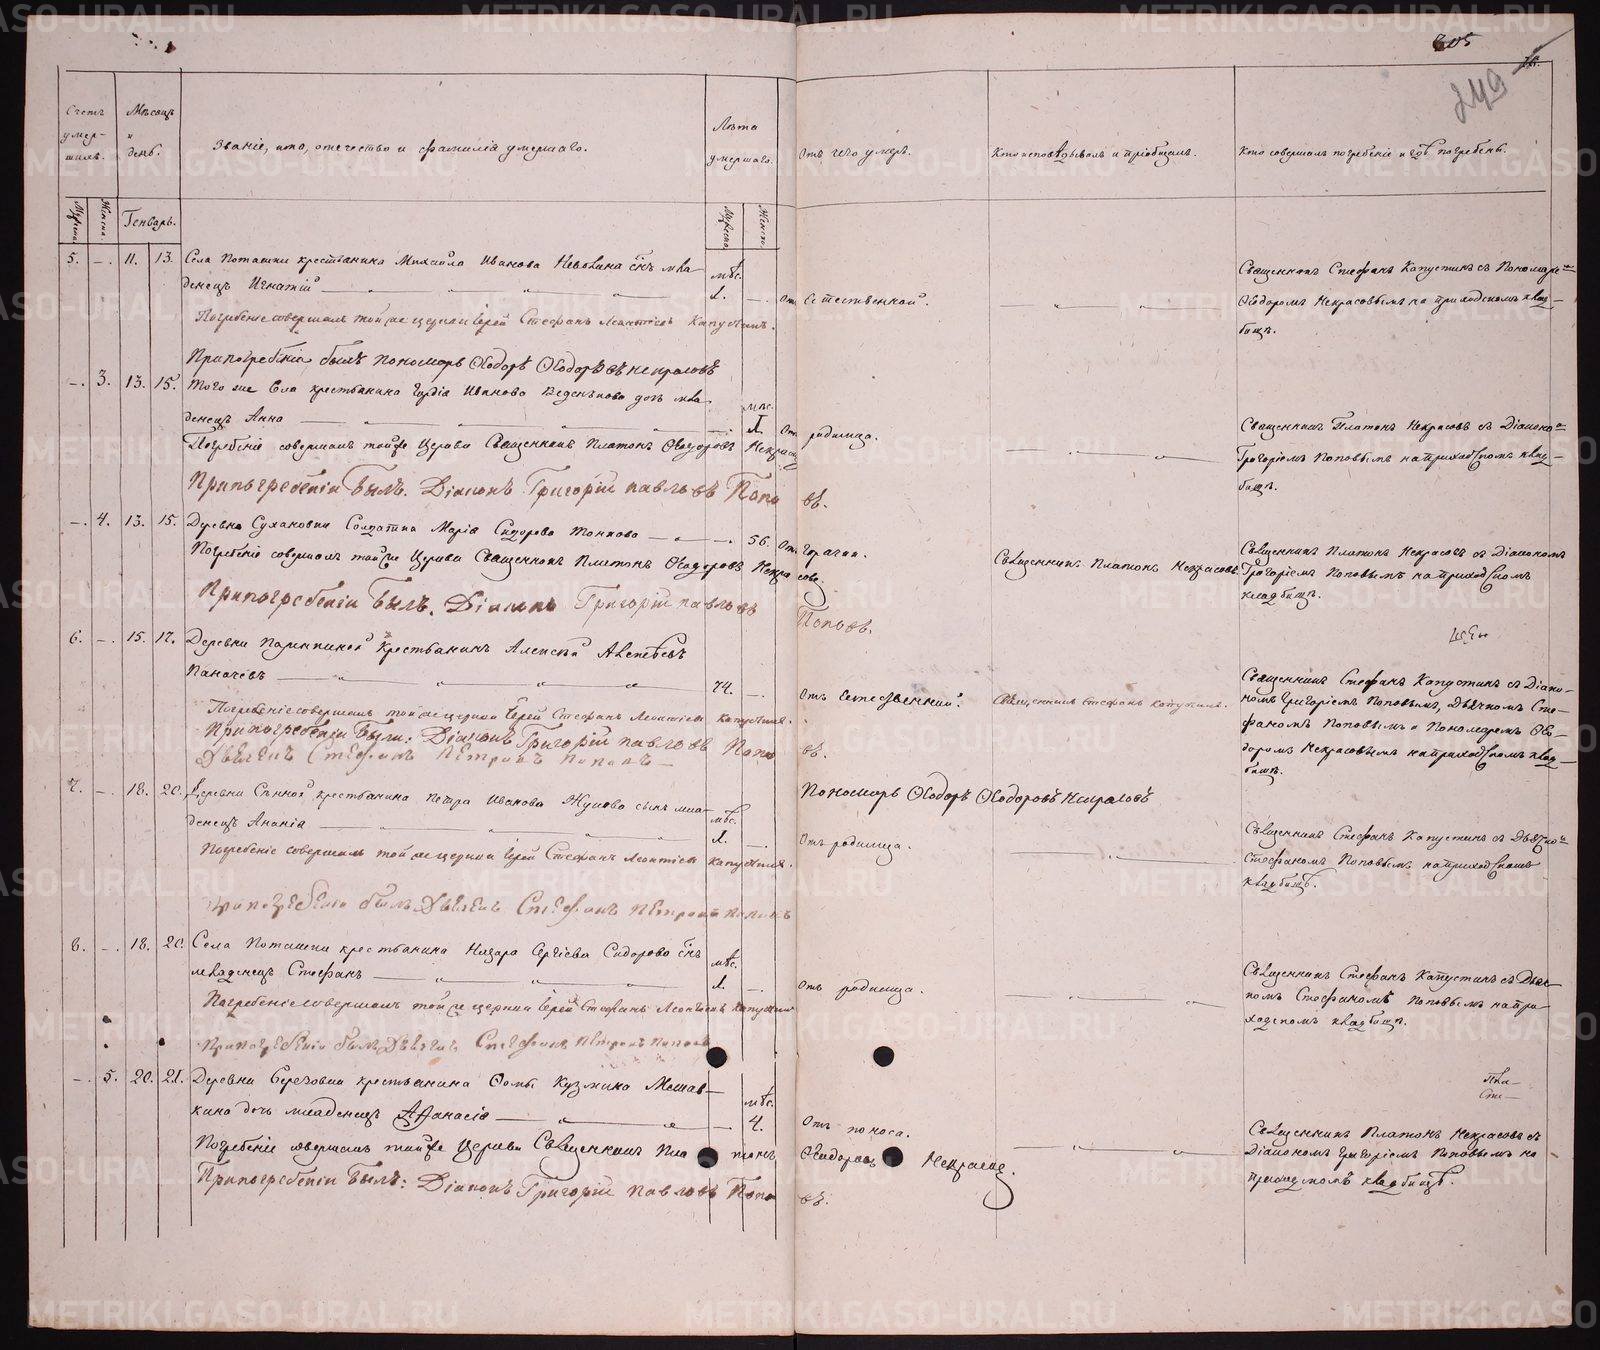 305
249
Счетъ умершихъ.
Мѣсяцъ и день.
Званіе, имя, отчество и фамилія умершаго.
Лѣта умершаго.
Отъ чего умеръ.
Кто исповѣдывалъ и пріобщалъ.
Кто совершалъ погребеніе и гдѣ погребены.
Мужеска. Женска. Генварь. Мужеско. Женско.
5. – 11. 13. Села Поташки крестьянина Михайла Иванова сынъ мла-
мѣс.
денецъ Игнатій 1. – Отъ Естественной.
Священникъ Стефанъ Капустинъ съ Пономаремъ
Ѳеодоромъ Некрасовымъ на приходскомъ клад-
бищѣ.
Погребеніе совершалъ той же церкви Іерей Стефанъ Леонтіевъ Капустинъ.
Припогребеніи былъ пономарь Ѳеодоръ Ѳеодоровъ некрасовъ
– 3. 13. 15. Того же Села крестьянина Гордія Иванова дочь мла-
мѣс.
денецъ Анна 1. Отъ родимца.
Священникъ Платонъ Некрасовъ съ Діакономъ
Григоріемъ Поповымъ на приходскомъ клад-
бищѣ.
Погребеніе совершалъ тойже Церкви Священникъ Платонъ Ѳеодоровъ Некрасовъ
Припогребеніи Былъ. Діаконъ Григорій павловъ Поповъ.
– 4. 13. 15. Деревни Сухановки Солдатка Марія Сидорова Тонкова – 56. Отъ горячки.
Священникъ Платонъ Некрасовъ.
Священникъ Платонъ Некрасовъ съ Діакономъ
Григоріемъ Поповымъ на приходскомъ
кладбищѣ.
Погребеніе совершалъ тойже Церкви Священникъ Платонъ Ѳеодоровъ Некрасовъ.
Припогребеніи Былъ. Діаконъ Григорій павловъ Поповъ.
6. – 15. 17. Деревни Крестьянинъ Алексѣй
74. – Отъ Естественной.
Священникъ Стефанъ Капустинъ.
Священникъ Стефанъ Капустинъ съ Діако-
номъ Григоріемъ Поповымъ, Дьячкомъ Сте-
фаномъ Поповымъ и Пономаремъ Ѳео-
доромъ Некрасовымъ на приходскомъ клад-
бищѣ.
Погребеніе совершалъ той же церкви Іерей Стефанъ Леонтіевъ Капустинъ.
Припогребеніи Были: Діаконъ Григорій павловъ Поповъ.
Дьячекъ Стефанъ Петровъ Поповъ
Пономарь Ѳеодоръ Ѳеодоровъ Некрасовъ
7. – 18. 20. Деревни крестьянина Петра Иванова сынъ мла-
мѣс.
денецъ Ананія 1. Отъ родимца.
Священникъ Стефанъ Капустинъ съ Дьячкомъ
Стефаномъ Поповымъ на приходскомъ
кладбищѣ.
Погребеніе совершалъ той же церкви Іерей Стефанъ Леонтіевъ Капустинъ.
припогребеніи былъ Дьячекъ Стефанъ Петровъ Поповъ
8. – 18. 20. Села Поташки крестьянина Назара Сергіева Сидорова сынъ
мѣс.
младенецъ Стефанъ 1. – Отъ родимца.
Священникъ Стефанъ Капустинъ съ Дьяч-
комъ Стефаномъ Поповымъ на при-
ходскомъ кладбищѣ.
Погребеніе совершалъ той же церкви Іерей Стефанъ Леонтіевъ Капустинъ
припогребеніи былъ Дьячекъ Стефанъ Петровъ Поповъ
– 5. 20. 21. Деревни Березовки крестьянина Ѳомы Кузмина
мѣс.
кина дочь младенецъ Аѳанасія 4. Отъ поноса.
Священникъ Платонъ Некрасовъ съ
Діакономъ Григоріемъ Поповымъ на
приходскомъ кладбищѣ.
Погребеніе совершалъ тойже Церкви Священникъ Платонъ Ѳеодоровъ Некрасовъ.
Припогребеніи Былъ: Діаконъ Григорій Павловъ Поповъ.
METRIKI.GASO-URAL.RU